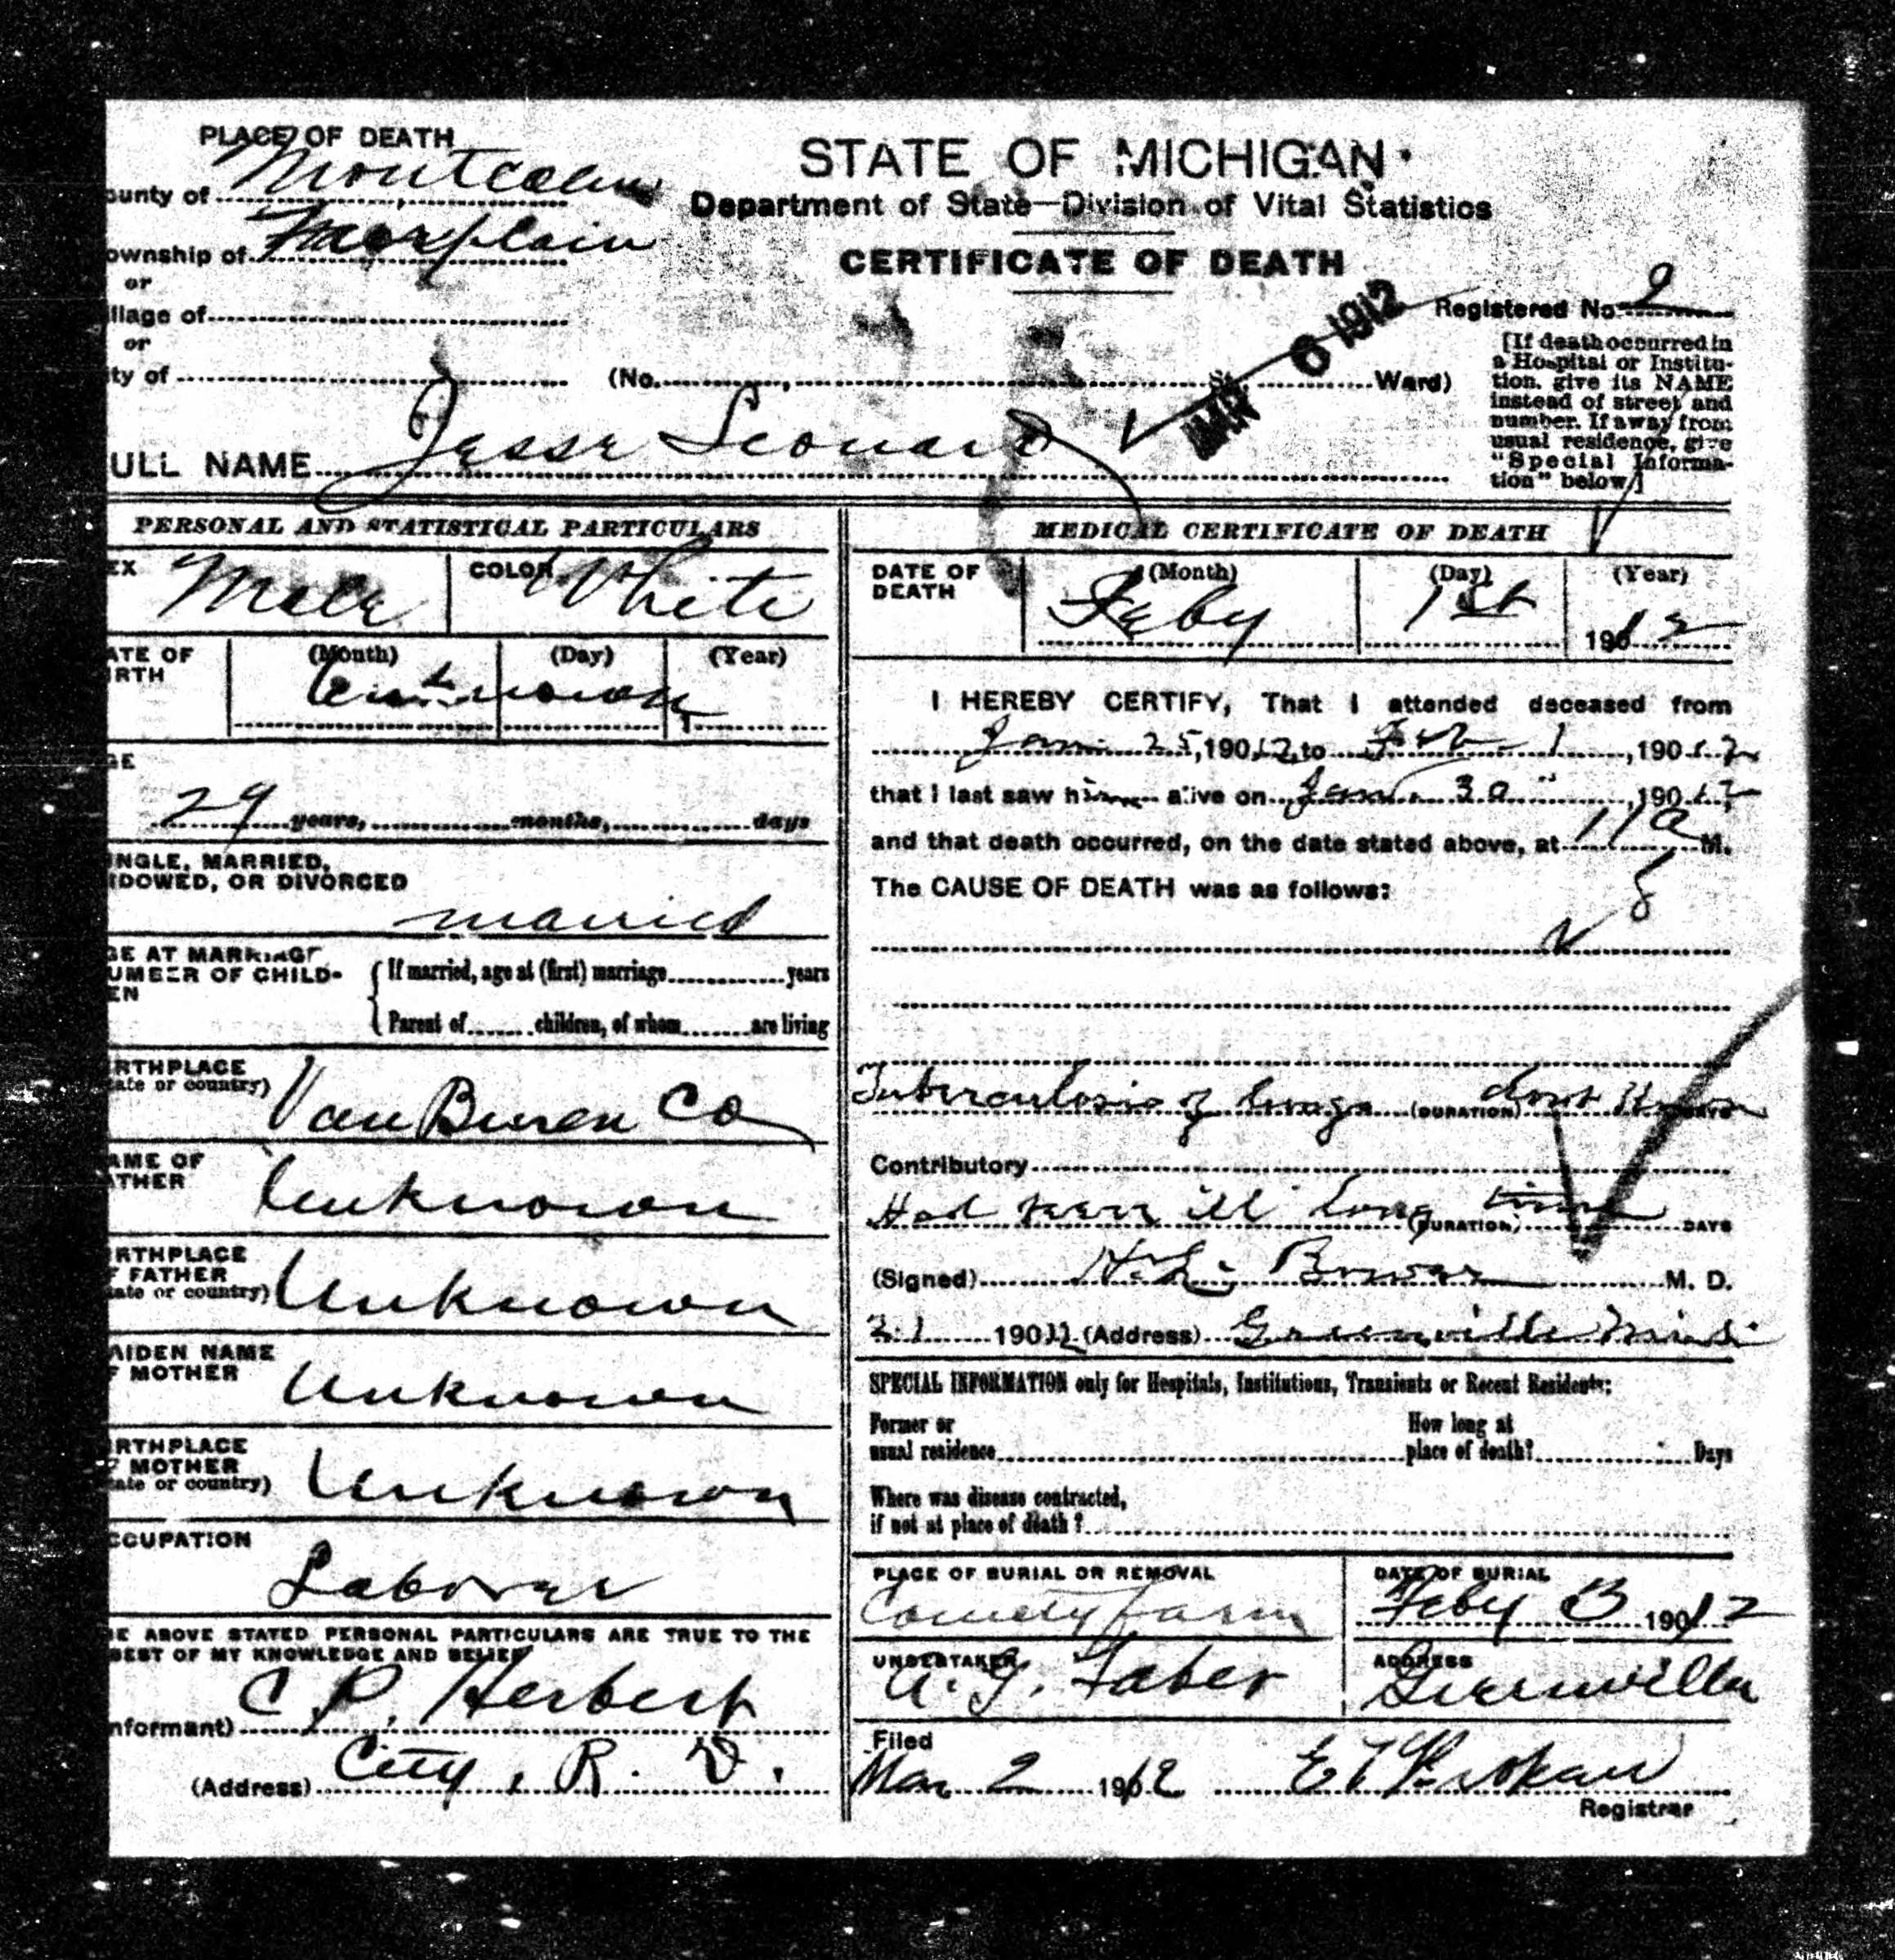 PLACE OF DEATH
ounty of Montcalm
ownship of Fairplain
or
illage of
or
ity of
STATE OF MICHIGAN
Department of State—Division of Vital Statistics
CERTIFICATE OF DEATH
MAR 6 1912
Registered No. 2
(No. St. Ward)
[If death occurred in
a Hospital or Institu-
tion, give its NAME
instead of street and
number. If away from
usual residence, give
"Special Informa-
tion" below.]
ULL NAME Jesse Leonard
PERSONAL AND STATISTICAL PARTICULARS
EX Male
COLOR White
ATE OF
IRTH
(Month) (Day) (Year)
Unknown
GE
29 years, months, days
INGLE, MARRIED,
IDOWED, OR DIVORCED
married
GE AT MARRIAGE
UMBER OF CHILD-
EN
If married, age at (first) marriage years
Parent of children, of whom are living
IRTHPLACE
tate or country)
Van Buren Co
AME OF
ATHER
Unknown
IRTHPLACE
F FATHER
tate or country)
Unknown
AIDEN NAME
F MOTHER
Unknown
IRTHPLACE
F MOTHER
tate or country)
Unknown
CCUPATION
Laborer
HE ABOVE STATED PERSONAL PARTICULARS ARE TRUE TO THE
BEST OF MY KNOWLEDGE AND BELIEF
nformant) C. P. Herbert
(Address) City, R. D.
MEDICAL CERTIFICATE OF DEATH
DATE OF
DEATH
(Month) (Day) (Year)
Feby 1st 1912
I HEREBY CERTIFY, That I attended deceased from
Jan. 25, 190 12, to Feb 1, 190 12
that I last saw him alive on Jan. 30, 190 12
and that death occurred, on the date stated above, at 11 a M.
The CAUSE OF DEATH was as follows:
8
Tuberculosis of lungs (DURATION) dont know DAYS
Contributory
Had been ill long time (DURATION) DAYS
(Signed) H. L. Bower M. D.
2-1 190 12 (Address) Greenville Mich
SPECIAL INFORMATION only for Hospitals, Institutions, Transients or Recent Residents:
Former or
usual residence
How long at
place of death? Days
Where was disease contracted,
if not at place of death?
PLACE OF BURIAL OR REMOVAL
County farm
DATE OF BURIAL
Feby 3 1912
UNDERTAKER
A. J. Faber
ADDRESS
Greenville
Filed
Mar 2 1912
Registrar